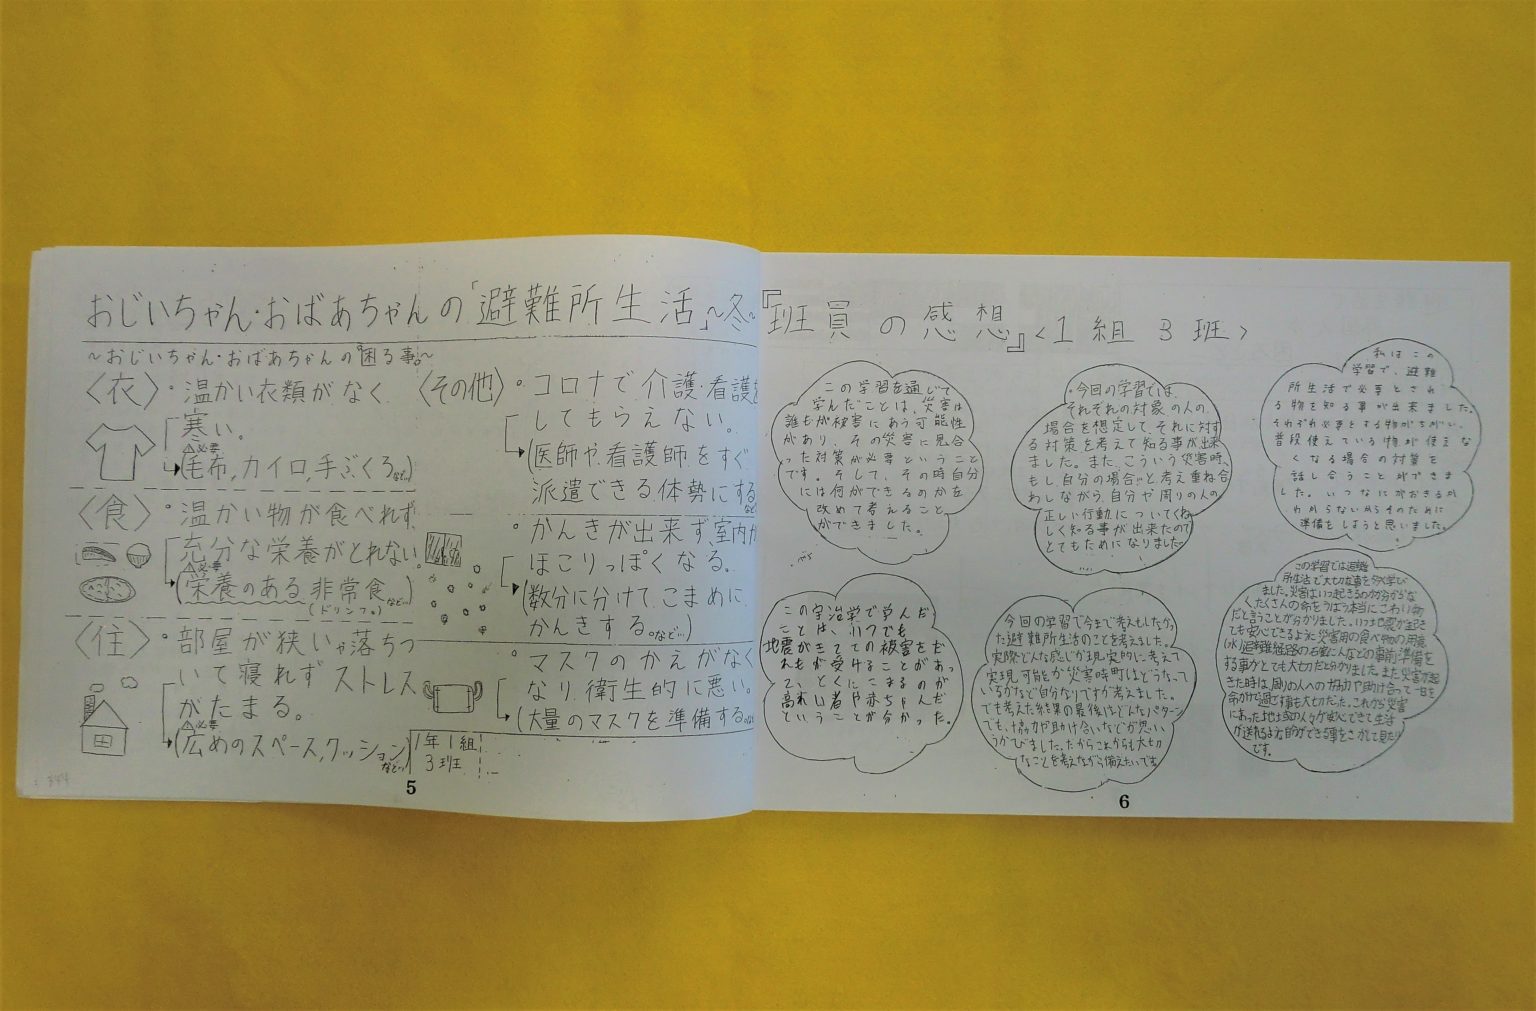 おじいちゃん・おばあちゃんの「避難所生活」～冬～
～おじいちゃん・おばあちゃんの"困る事"～
〈衣〉・温かい衣類がなく
寒い。
必要
(毛布,カイロ,手ぶくろなど...)
〈食〉・温かい物が食べれず、
充分な栄養がとれない。
必要
(栄養のある非常食)
(ドリンクetc)など...
〈住〉・部屋が狭いや落ちつ
いて寝れずストレス
がたまる。
必要
(広めのスペース,クッション)
など...
〈その他〉・コロナで介護・看護を
してもらえない。
(医師や看護師をすぐ
派遣できる体勢にする
・かんきが出来ず、室内が
ほこりっぽくなる。
(数分に分けて、こまめに
かんきする。など...)
・マスクのかえがなく
なり、衛生的に悪い。
(大量のマスクを準備する
1年1組
3班
5
『班員の感想』〈1組3班〉
この学習を通じて
学んだことは、災害は
誰もが被害にあう可能性
があり、その災害に見合
った対策が必要ということ
です。そして、その時自分
には何ができるのかを
改めて考えること
ができました。
・今回の学習では、
それぞれの対象の人の
場合を想定して、それに対す
る対策を考えて知る事が出来
ました。また、こういう災害時、
もし、自分の場合…と考え重ね合
わしながら、自分や周りの人の
正しい行動についてくわ
しく知る事が出来たので
とてもためになりました。
私はこの
学習で、避難
所生活で必要とされ
る物を知る事が出来ました。
それぞれ必要とする物がちがい、
普段使えている物が使えな
くなる場合の対策を
話し合うことができま
した。いつなにがおきるか
わからないからそのために
準備をしようと思いました。
この宇治学で学んだ
ことは、いつでも
地震がきての被害をだ
れもが受けることがあっ
て、とくにこまるのが
高れい者や赤ちゃんだ
ということが分かった。
今回の学習で今まで考えもしなかっ
た避難所生活のことを考えました。
実際どんな感じか現実的に考えて
実現可能か災害時町はどうなって
いるかなど自分なりですが考えました。
でも考えた結果の最後はどんなパターン
でも、協力や助け合いなどが思い
うかびました。だからこれからも大切
なことを考えながら備えたいです。
この学習では避難
所生活で大切な事を多く学び
ました。災害はいつ起きるのか分からな
くたくさんの命をうばう本当にこわい物
だと言うことが分かりました。いつ地震が起き
ても安心できるように災害用の食べ物の用意
(水)避難経路の確にんなどの事前準備を
する事がとても大切だと分かりました。また災害が起
きた時は、周りの人への協力や助け合って一日を
命がけで過ごす事も大切だった。これから災害
にあった地域の人々が安心できて生活
が送れるよう自分ができる事をさがして見たい
です。
6